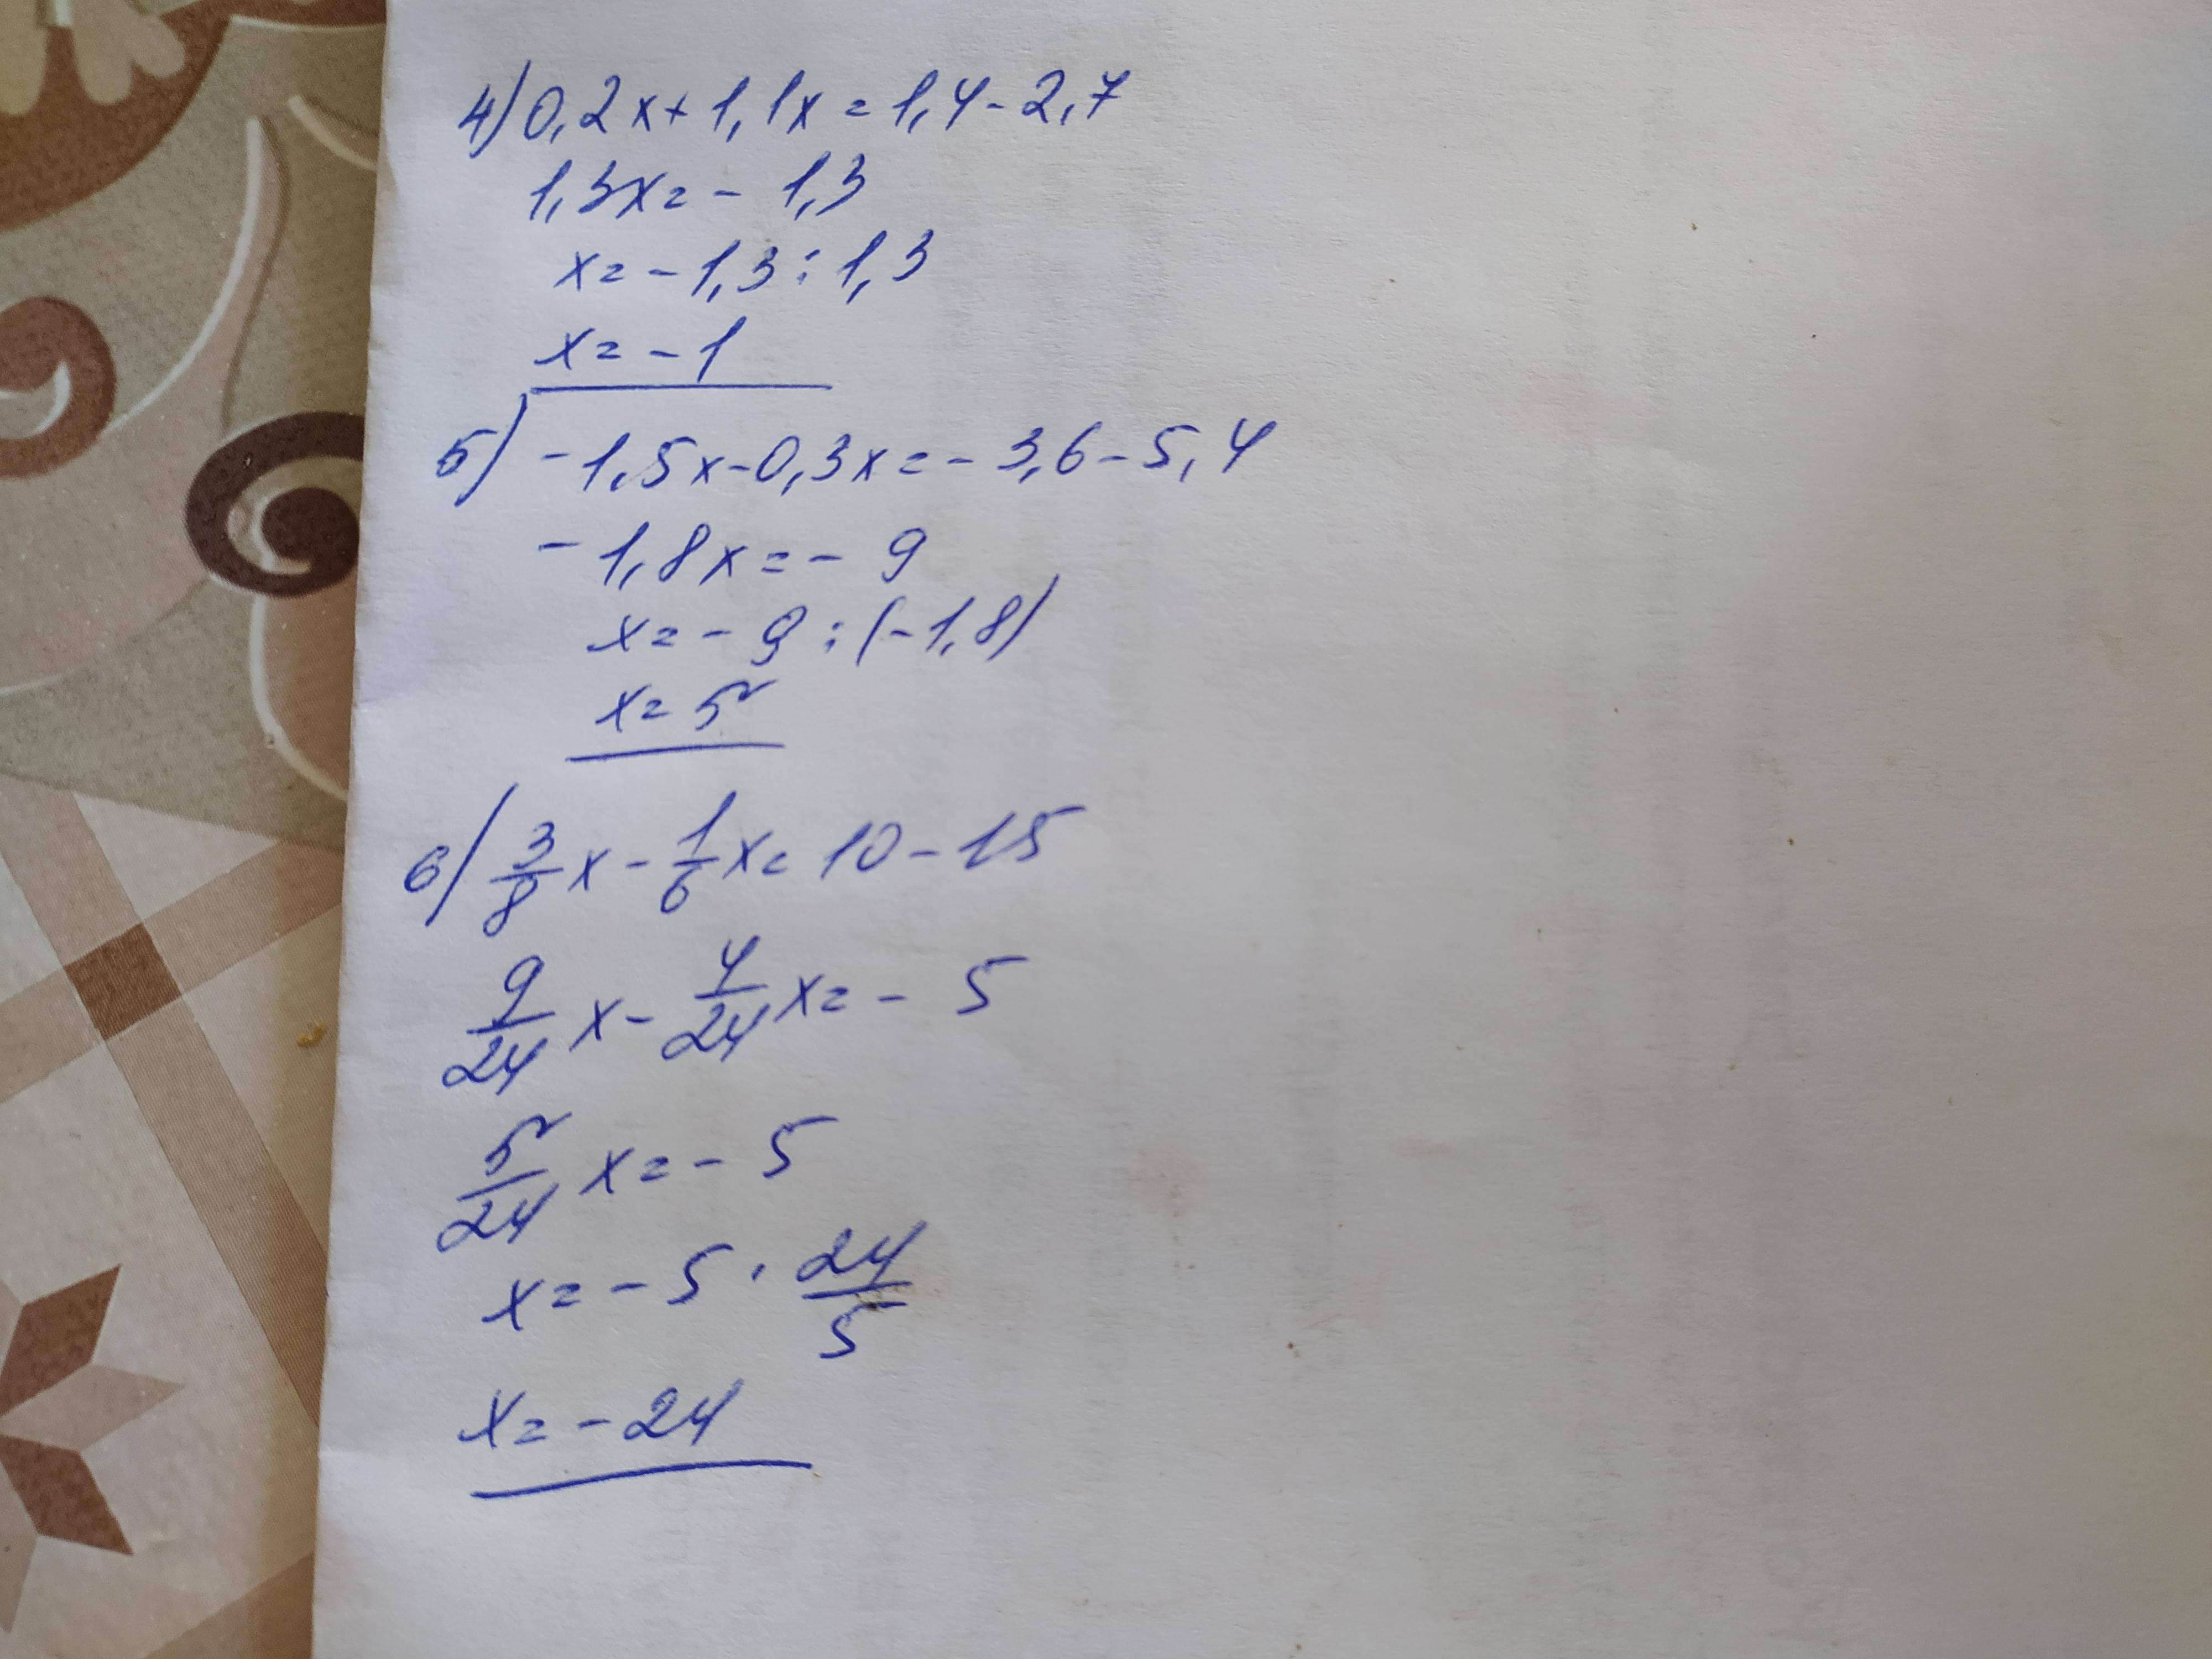 4) 0,2x + 1,1x = 1,4 - 2,7
1,3x = - 1,3
x = - 1,3 : 1,3
x = - 1
5) - 1,5x - 0,3x = - 3,6 - 5,4
- 1,8x = - 9
x = - 9 : (-1,8)
x = 5
6) 3/8 x - 1/6 x = 10 - 15
9/24 x - 4/24 x = - 5
5/24 x = - 5
x = - 5 · 24/5
x = - 24